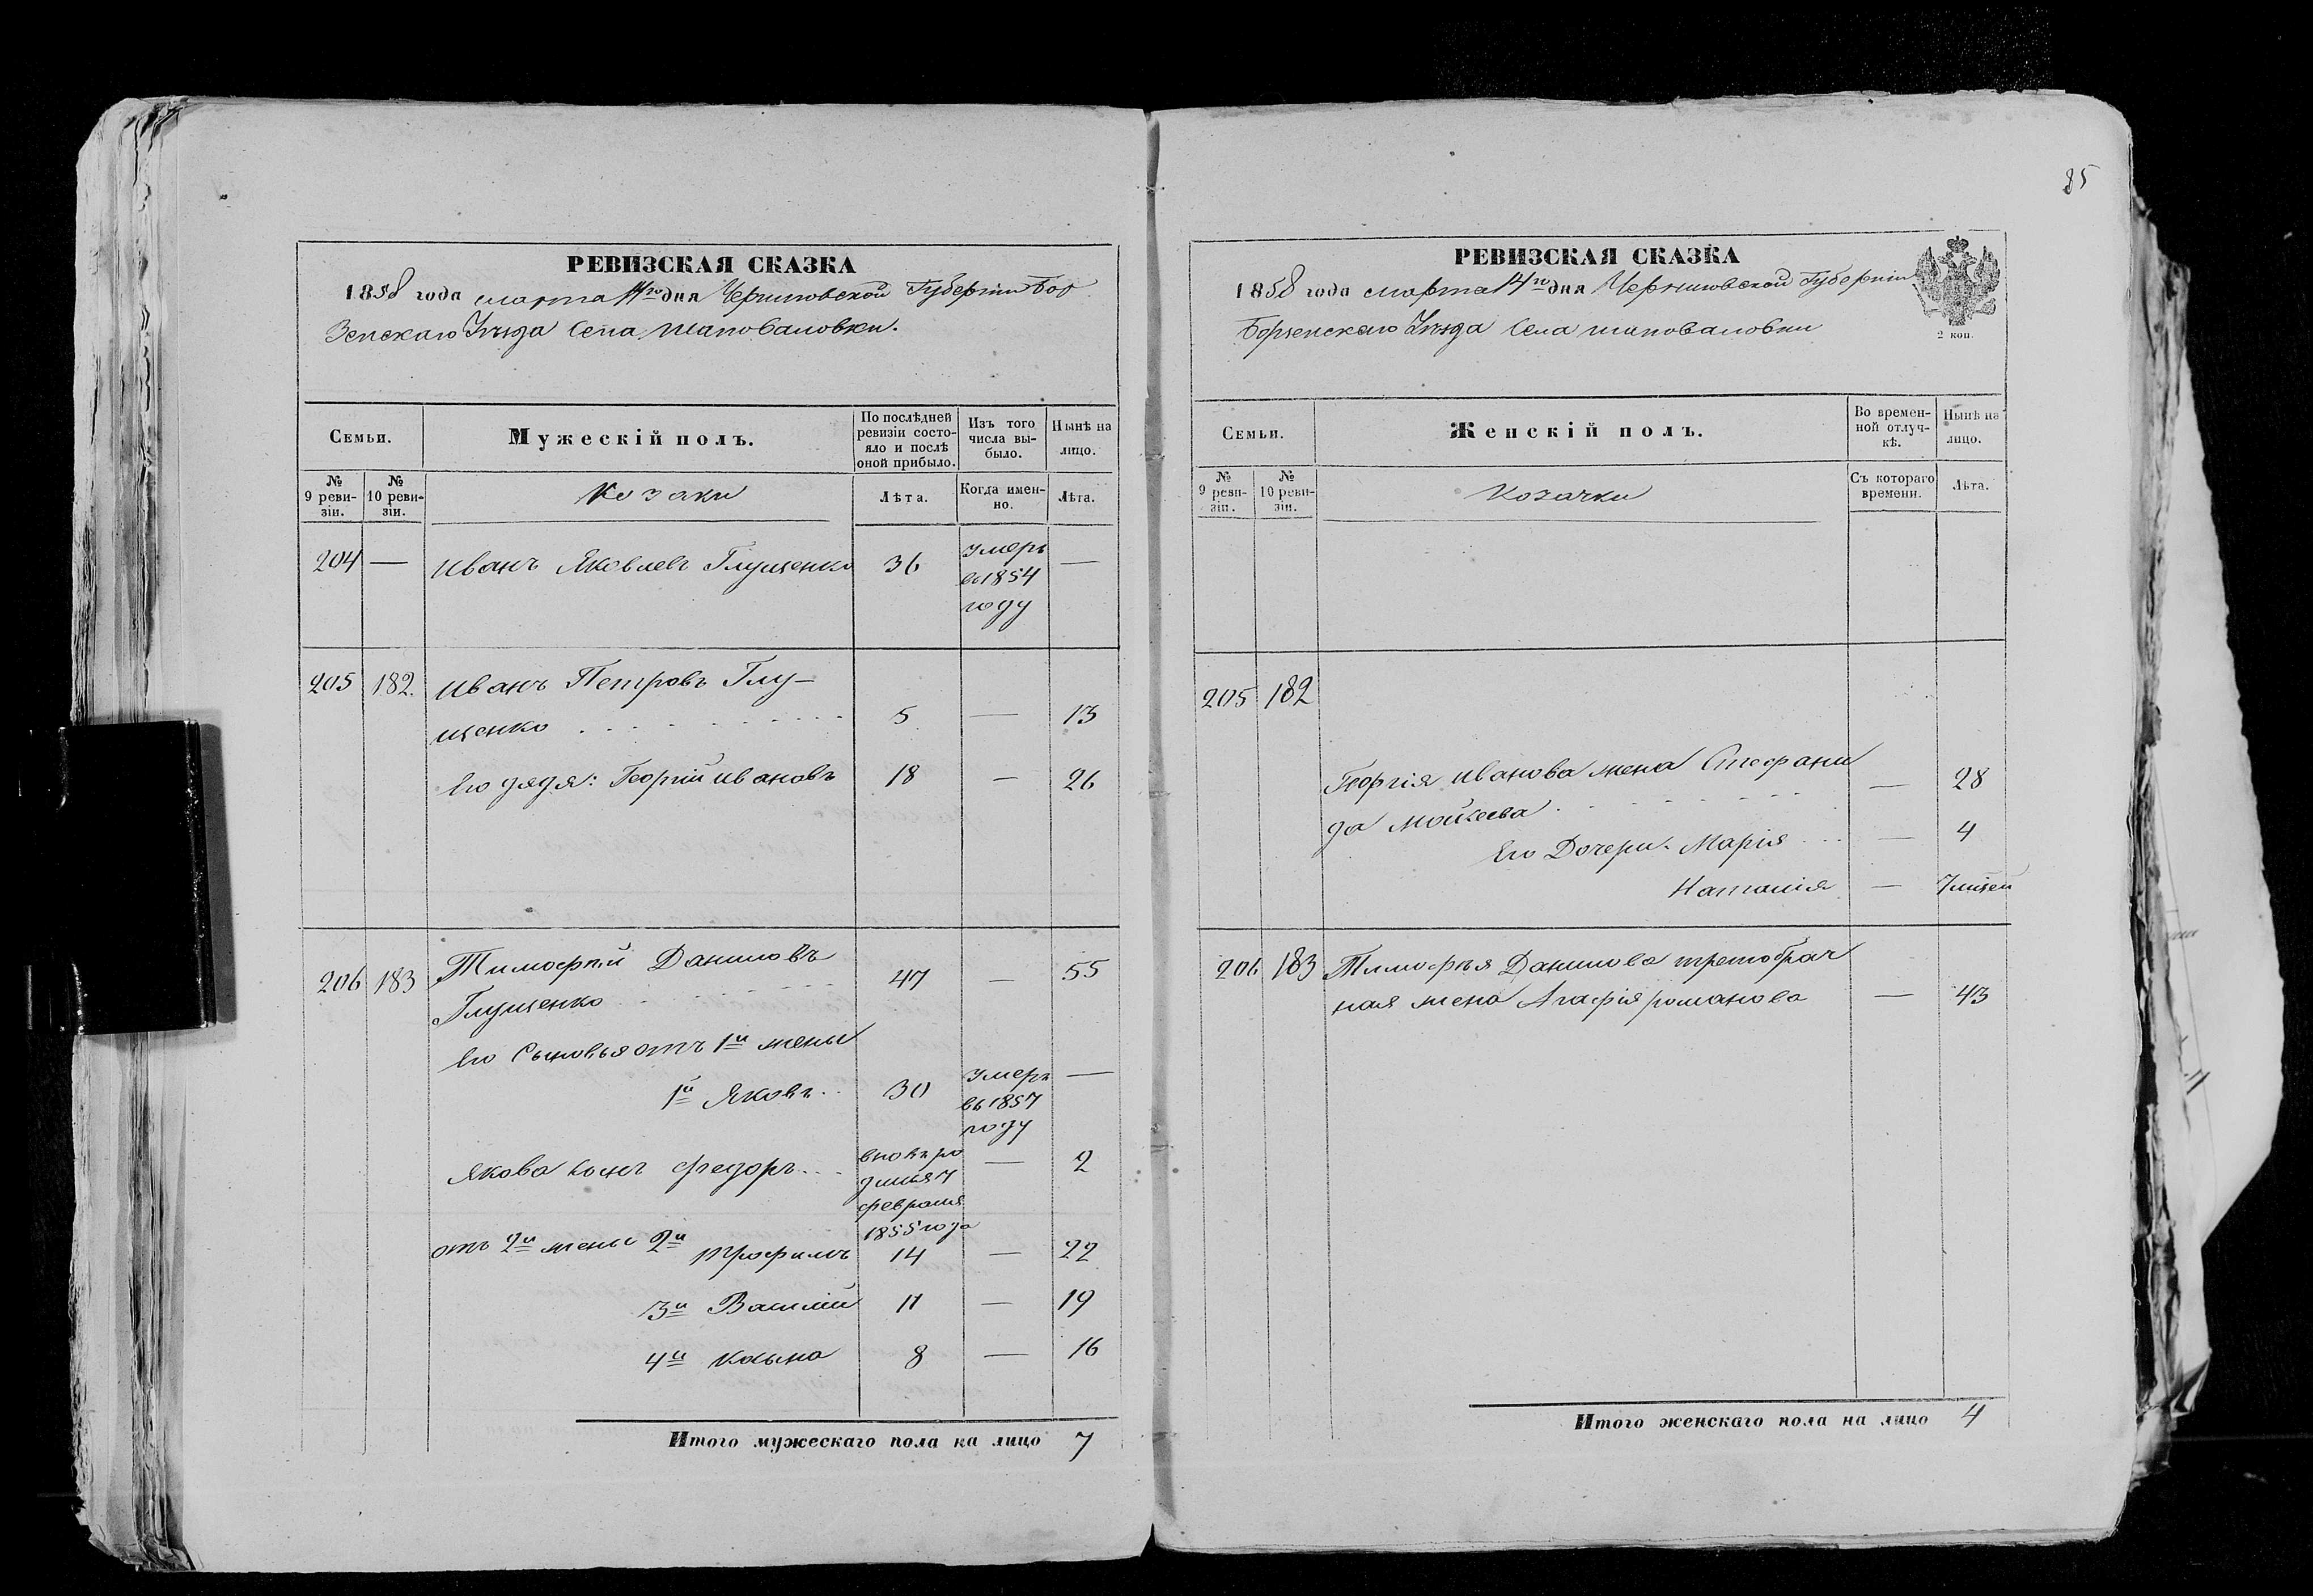 85
РЕВИЗСКАЯ СКАЗКА
1858 года марта 14го дня Черниговской Губернiи Бор
зенскаго Уѣзда Села Шаповаловки.
Семьи.
Мужескiй полъ.
По послѣдней ревизiи состояло и послѣ оной прибыло.
Изъ того числа выбыло.
Нынѣ на лицо.
№ 9 ревизiи.
№ 10 ревизiи.
Козаки
Лѣта.
Когда именно.
Лѣта.
204 — Иванъ Яковлевъ Глущенко 36 умеръ въ 1854 году —
205 182. Иванъ Петровъ Глу-
щенко 5 — 13
Его дядя: Георгiй Ивановъ 18 — 26
206 183 Тимофѣй Даниловъ
Глущенко 47 — 55
Его Сыновья отъ 1й жены
1й Яковъ 30 умеръ въ 1857 году —
Якова сынъ Федоръ вновь ро
дился 7
февраля
1855 года — 2
отъ 2й жены 2й Трофимъ 14 — 22
3й Василiй 11 — 19
4й Косьма 8 — 16
Итого мужескаго пола на лицо 7
РЕВИЗСКАЯ СКАЗКА
1858 года марта 14го дня Черниговской Губернiи
Борзенскаго Уѣзда Села Шаповаловки
2 коп.
Семьи.
Женскiй полъ.
Во временной отлучкѣ.
Нынѣ на лицо.
№ 9 ревизiи.
№ 10 ревизiи.
Козачки
Съ котораго времени.
Лѣта.
205 182
Георгiя Иванова жена Стефани
да Мойсеева — 28
Его Дочери: Марiя — 4
Наталiя —
206 183 Тимофѣя Данилова третобрач
ная жена Агафiя Романова — 43
Итого женскаго пола на лицо 4